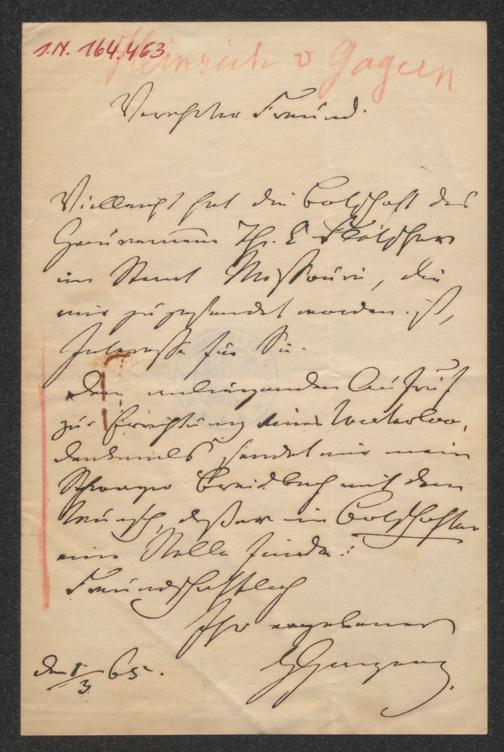 I.N. 164.463
Heinrich v Gagern
Verehrter Freund.
Vielleicht hat die Botschaft des
Gouverneurs Th. C. Fletcher
im Staat Missouri, die
mir zugesendet worden ist,
Interesse für Sie.
Den anliegenden Aufruf
zur Errichtung eines Waterloo,
denkmals sendet mir mein
Schwager Breidbach mit dem
Wunsch, daß er im Botschafter
eine Stelle finde.
Freundschaftlich
Ihr ergebener
HGagern
den 1/3 65.